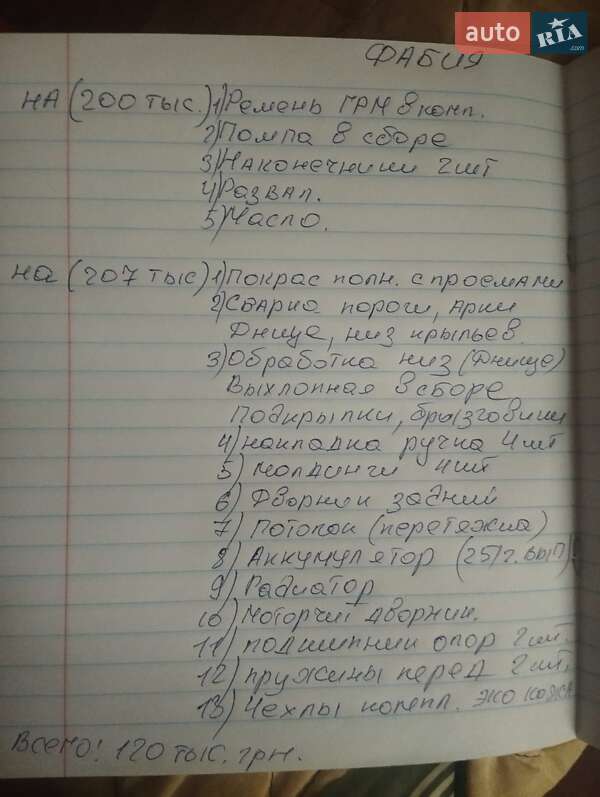 auto RIA .com
ФАБИЯ
НА (200 ТЫС.) 1) Ремень ГРМ в комп.
2) Помпа в сборе
3) Наконечники 2шт
4) Развал.
5) Масло.
на (207 тыс) 1) Покрас полн. с проемами
2) Сварка пороги, Арки
Днище, низ крыльев.
3) Обработка низ (Днище)
Выхлопная в сборе
Подкрылки, брызговики
4) накладка ручка 4шт
5) молдинги 4шт
6) Дворник задний
7) Потолок (перетяжка)
8) Аккумулятор (25/г. вып)
9) Радиатор
10) Моторчик дворник.
11) подшипник опор 2шт.
12) пружины перед 2шт,
13) Чехлы компл. эко кожа
Всего! 120 тыс. грн.